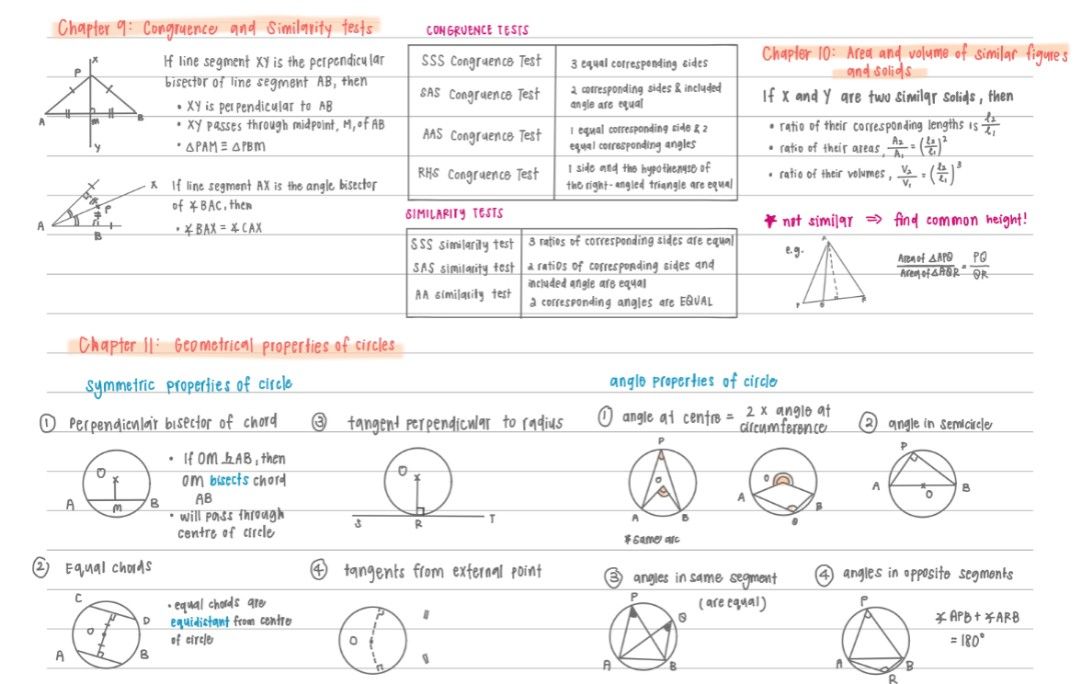 Chapter 9: Congruence and Similarity tests
X
P
A
M
B
Y
If line segment XY is the perpendicular
bisector of line segment AB, then
• XY is perpendicular to AB
• XY passes through midpoint, M, of AB
• △PAM ≡ △PBM
X
P
A
B
If line segment AX is the angle bisector
of ∡BAC, then
• ∡BAX = ∡CAX
CONGRUENCE TESTS
SSS Congruence Test
3 equal corresponding sides
SAS Congruence Test
2 corresponding sides & included
angle are equal
AAS Congruence Test
1 equal corresponding side & 2
equal corresponding angles
RHS Congruence Test
1 side and the hypothenuse of
the right-angled triangle are equal
SIMILARITY TESTS
SSS similarity test
3 ratios of corresponding sides are equal
SAS similarity test
2 ratios of corresponding sides and
included angle are equal
AA similarity test
2 corresponding angles are EQUAL
Chapter 10: Area and volume of similar figures
and solids
If X and Y are two similar solids, then
• ratio of their corresponding lengths is l₂/l₁
• ratio of their areas, A₂/A₁ = (l₂/l₁)²
• ratio of their volumes, V₂/V₁ = (l₂/l₁)³
★ not similar ⇒ find common height!
e.g.
A
P
Q
R
Area of △APQ / Area of △AQR = PQ / QR
Chapter 11: Geometrical properties of circles
symmetric properties of circle
① Perpendicular bisector of chord
O
A
M
B
• If OM ⊥ AB, then
OM bisects chord
AB
• will pass through
centre of circle
② Equal chords
C
D
O
A
B
• equal chords are
equidistant from centre
of circle
③ tangent perpendicular to radius
O
S
R
T
④ tangents from external point
O
angle properties of circle
① angle at centre = 2 x angle at
circumference
P
O
A
B
* same arc
O
A
B
Q
② angle in semicircle
P
A
O
B
③ angles in same segment
(are equal)
P
Q
A
B
④ angles in opposite segments
P
A
B
R
∡APB + ∡ARB
= 180°